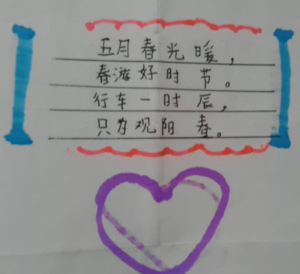 五月春光暖，
春游好时节。
行车一时辰，
只为观阳春。